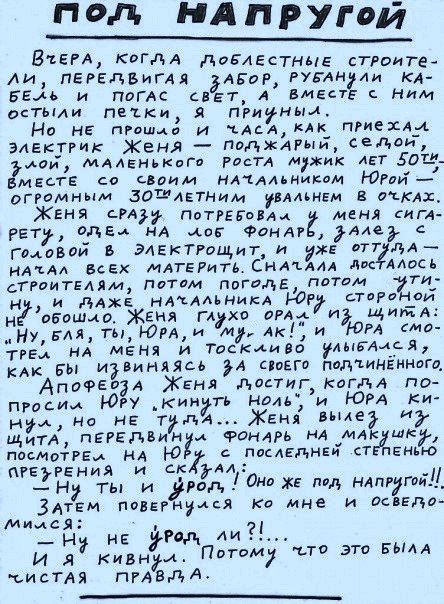 ПОД НАПРУГОЙ
Вчера, когда доблестные строите-
ли, передвигая забор, рубанули ка-
бель и погас свет, а вместе с ним
остыли печки, я приуныл.
Но не прошло и часа, как приехал
электрик Женя — поджарый, седой,
злой, маленького роста мужик лет 50ти,
вместе со своим начальником Юрой —
огромным 30тилетним увальнем в очках.
Женя сразу потребовал у меня сига-
рету, одел на лоб фонарь, залез с
головой в электрощит, и уже оттуда —
начал всех материть. Сначала досталось
строителям, потом погоде, потом Пути-
ну, и даже начальника Юру стороной
не обошло. Женя глухо орал из щита:
„Ну, бля, ты, Юра, и му.ак!", и Юра смо-
трел на меня и тоскливо улыбался,
как бы извиняясь за своего подчинённого.
Апофеоза Женя достиг, когда по-
просил Юру „кинуть ноль", и Юра ки-
нул, но не туда... Женя вылез из
щита, передвинул фонарь на макушку,
посмотрел на Юру с последней степенью
презрения и сказал:
— Ну ты и у́род! Оно же под напругой!!
Затем повернулся ко мне и осведо-
мился:
— Ну не у́род ли?!...
И я кивнул. Потому что это была
чистая правда.